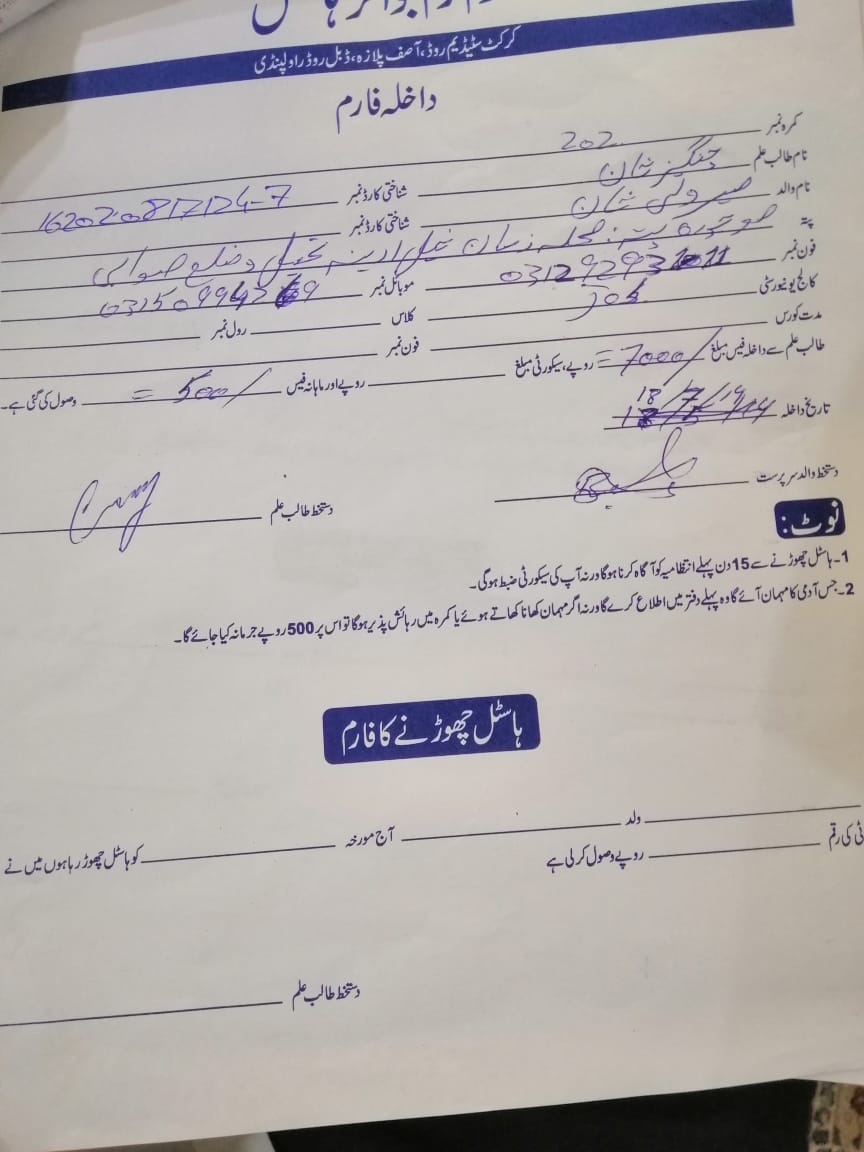 کرکٹ سٹیڈیم روڈ، آصف پلازہ، ڈبل روڈ راولپنڈی
داخلہ فارم
کمرہ نمبر 202
نام طالب علم چنگیز خان شناختی کارڈ نمبر 16202-0817124-7
نام والد خان شناختی کارڈ نمبر
پتہ موجودہ پتہ: محلہ خیل ادینہ تحصیل و ضلع صوابی
فون نمبر موبائل نمبر
کالج یونیورسٹی Job کلاس رول نمبر
مدت کورس فون نمبر
طالب علم سے داخلہ فیس مبلغ 7000/= روپے، سیکورٹی مبلغ روپے اور ماہانہ فیس 500/= وصول کی گئی ہے۔
تاریخ داخلہ 18/7/19
دستخط والد سرپرست دستخط طالب علم
نوٹ:
1۔ ہاسٹل چھوڑنے سے 15 دن پہلے انتظامیہ کو آگاہ کرنا ہوگا ورنہ آپ کی سیکورٹی ضبط ہوگی۔
2۔ جس آدمی کا مہمان آئے گا وہ پہلے دفتر میں اطلاع کرے گا ورنہ اگر مہمان کھانا کھاتے ہوئے یا کمرہ میں رہائش پذیر ہوگا تو اس پر 500 روپے جرمانہ کیا جائے گا۔
ہاسٹل چھوڑنے کا فارم
ولد آج مورخہ کو ہاسٹل چھوڑ رہا ہوں میں نے
ٹی کی رقم روپے وصول کر لی ہے
دستخط طالب علم